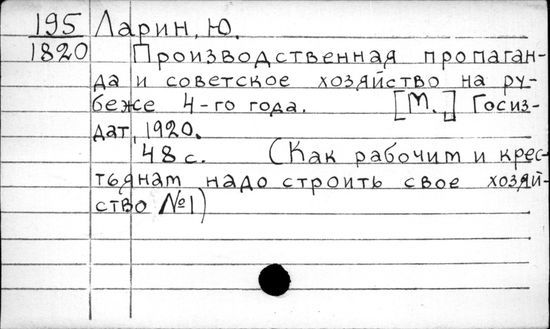 195 Ларин, Ю.
1820 Производственная пропаган-
да и советское хозяйство на ру-
беже 4-го года. [М.] Госиз-
дат, 1920.
48 с. (Как рабочим и крес-
тьянам надо строить свое хозяй-
ство №1)